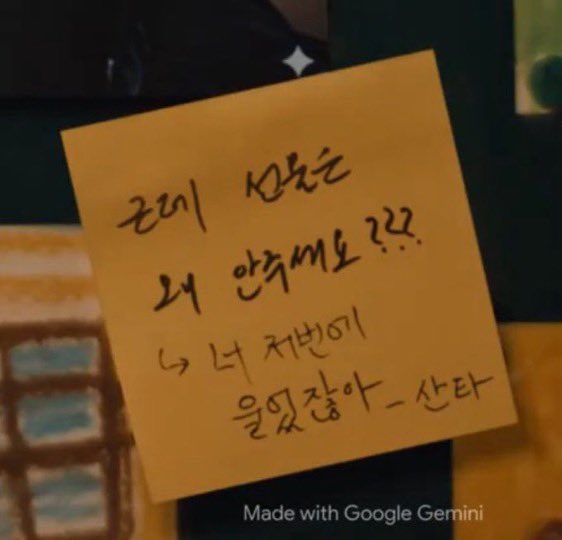 근데 선물은
왜 안주세요???
↳ 너 저번에
울었잖아 - 산타
Made with Google Gemini